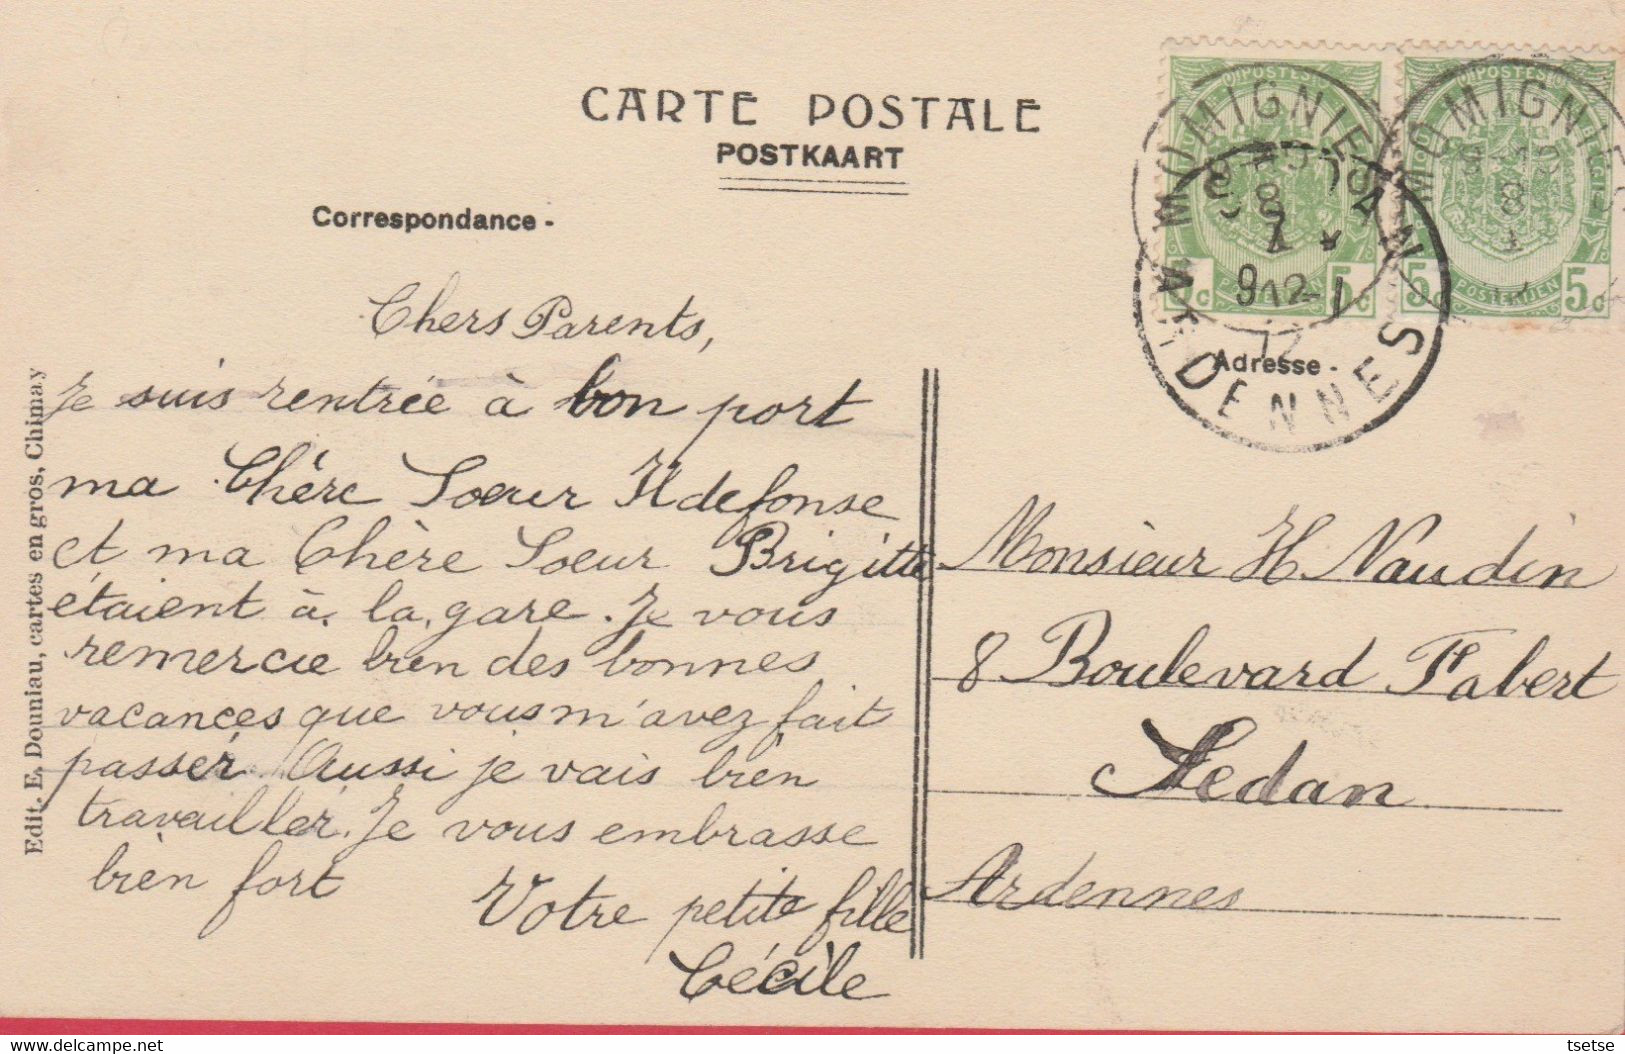 CARTE POSTALE
POSTKAART
Correspondance -
Adresse -
Chers Parents,
Je suis rentrée à bon port
ma Chère Soeur Ildefonse
et ma Chère Soeur Brigitte
étaient à la gare. Je vous
remercie bien des bonnes
vacances que vous m'avez fait
passer. Aussi je vais bien
travailler. Je vous embrasse
bien fort
Votre petite fille
Cécile
Monsieur H Naudin
8 Boulevard Fabert
Sedan
Ardennes
Edit. E. Douniau, cartes en gros, Chimay
MOMIGNIES
MOMIGNIES
POSTES
POSTES
POSTERIJEN
POSTERIJEN
5c
5c
5c
5c
SEDAN
ARDENNES
tsetse
delcampe.net